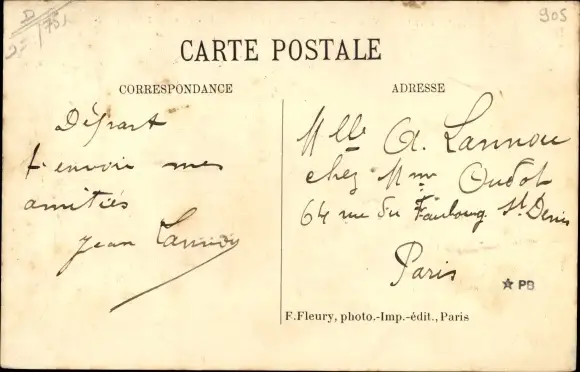 905
CARTE POSTALE
CORRESPONDANCE
ADRESSE
Départ
t'envoie mes
amitiés
Jean Lannou
Mlle A. Lannou
chez Mme Oudot
64 rue du Faubourg St. Denis
Paris
PB
F. Fleury, photo.-Imp.-édit., Paris